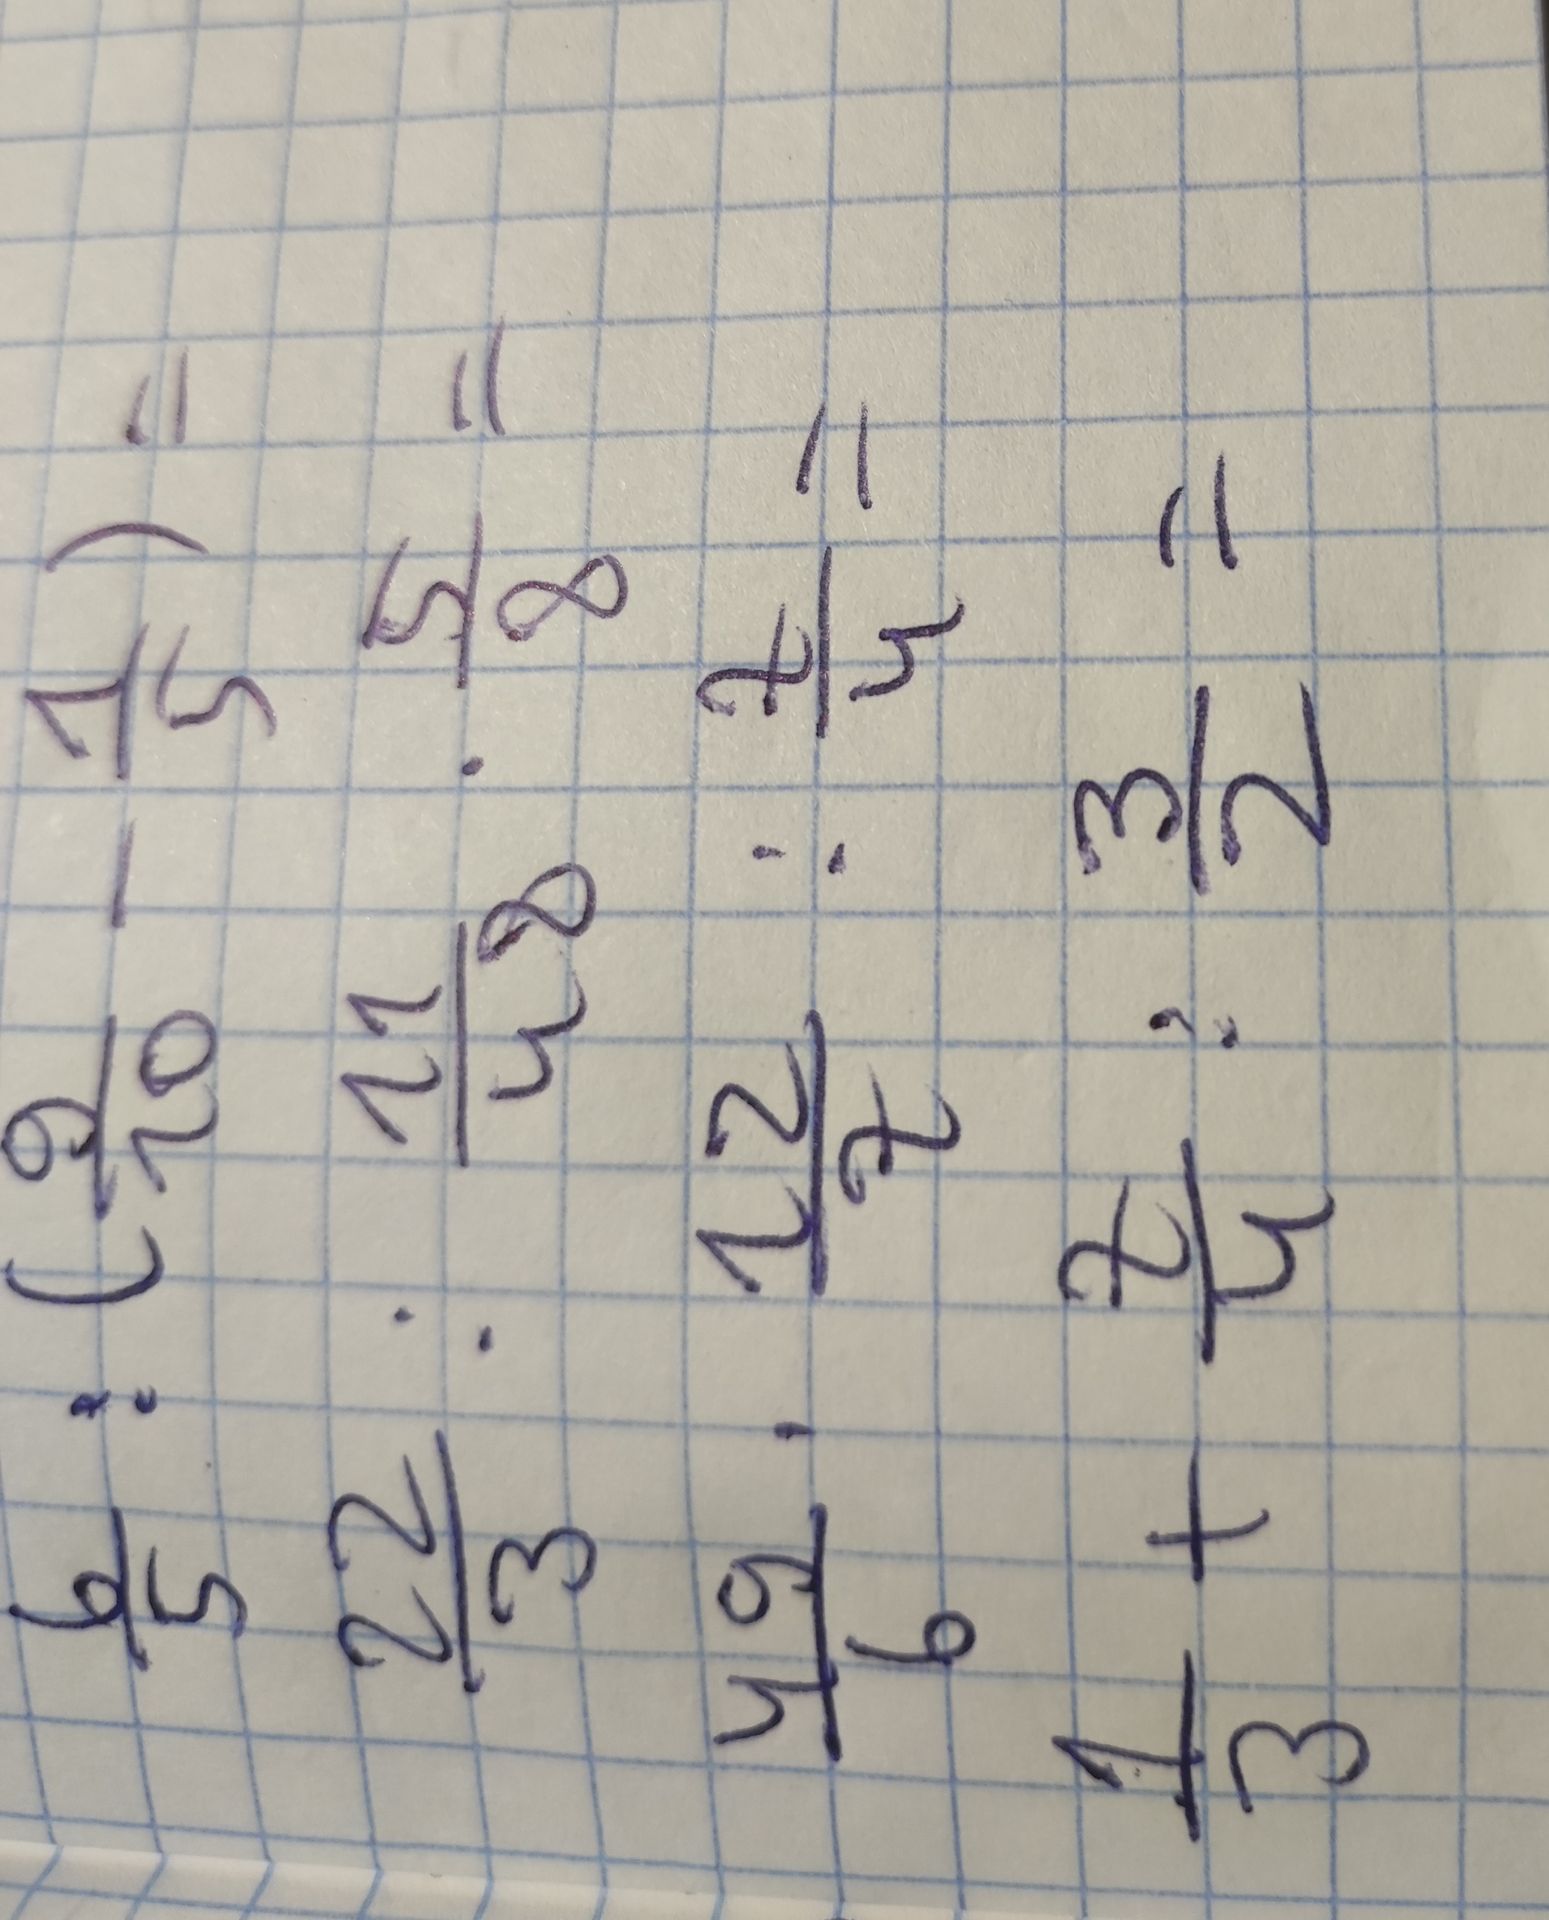 6/5 : (9/10 - 1/5) =
22/3 : 11/48 · 5/8 =
49/6 · 12/7 : 7/4 =
1/3 + 7/4 : 3/2 =